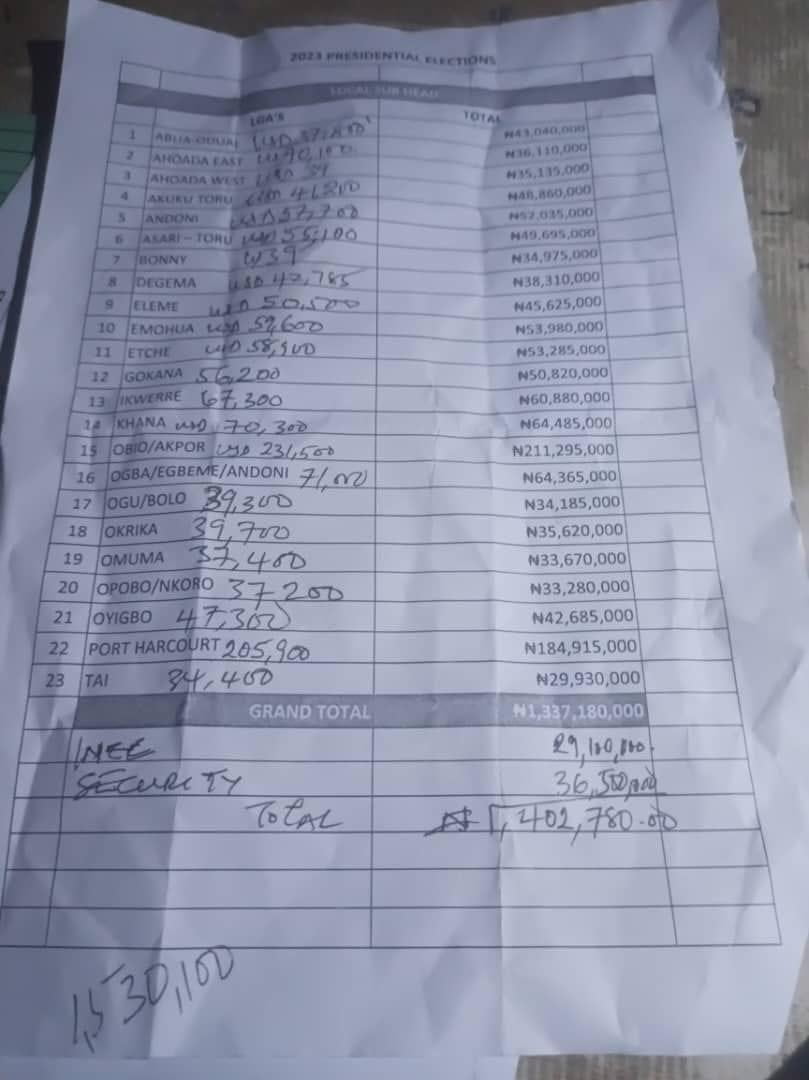 2023 PRESIDENTIAL ELECTIONS
LOCAL SUB HEAD
LGA'S TOTAL
1 ABUA-ODUAL USD 37,800 ₦43,040,000
2 AHOADA EAST 40,100 ₦36,110,000
3 AHOADA WEST USD 39 ₦35,135,000
4 AKUKU TORU 41,200 ₦48,860,000
5 ANDONI USD 57,700 ₦52,035,000
6 ASARI-TORU USD 55,100 ₦49,695,000
7 BONNY 39 ₦34,975,000
8 DEGEMA USD 42,785 ₦38,310,000
9 ELEME USD 50,500 ₦45,625,000
10 EMOHUA USD 59,600 ₦53,980,000
11 ETCHE USD 58,900 ₦53,285,000
12 GOKANA 56,200 ₦50,820,000
13 IKWERRE 67,300 ₦60,880,000
14 KHANA USD 70,300 ₦64,485,000
15 OBIO/AKPOR USD 231,500 ₦211,295,000
16 OGBA/EGBEME/ANDONI 71,000 ₦64,365,000
17 OGU/BOLO 39,300 ₦34,185,000
18 OKRIKA 39,700 ₦35,620,000
19 OMUMA 37,400 ₦33,670,000
20 OPOBO/NKORO 37200 ₦33,280,000
21 OYIGBO 47,300 ₦42,685,000
22 PORT HARCOURT 205,900 ₦184,915,000
23 TAI 34,400 ₦29,930,000
GRAND TOTAL ₦1,337,180,000
INEC 29,100,000
SECURITY 36,500,000
TOTAL ₦1,402,780.00
1,530,100